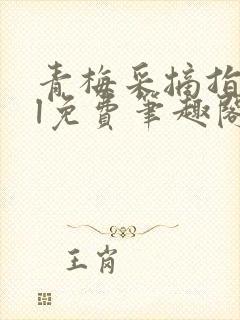 青梅采摘指
1免费笔趣阁
王岗